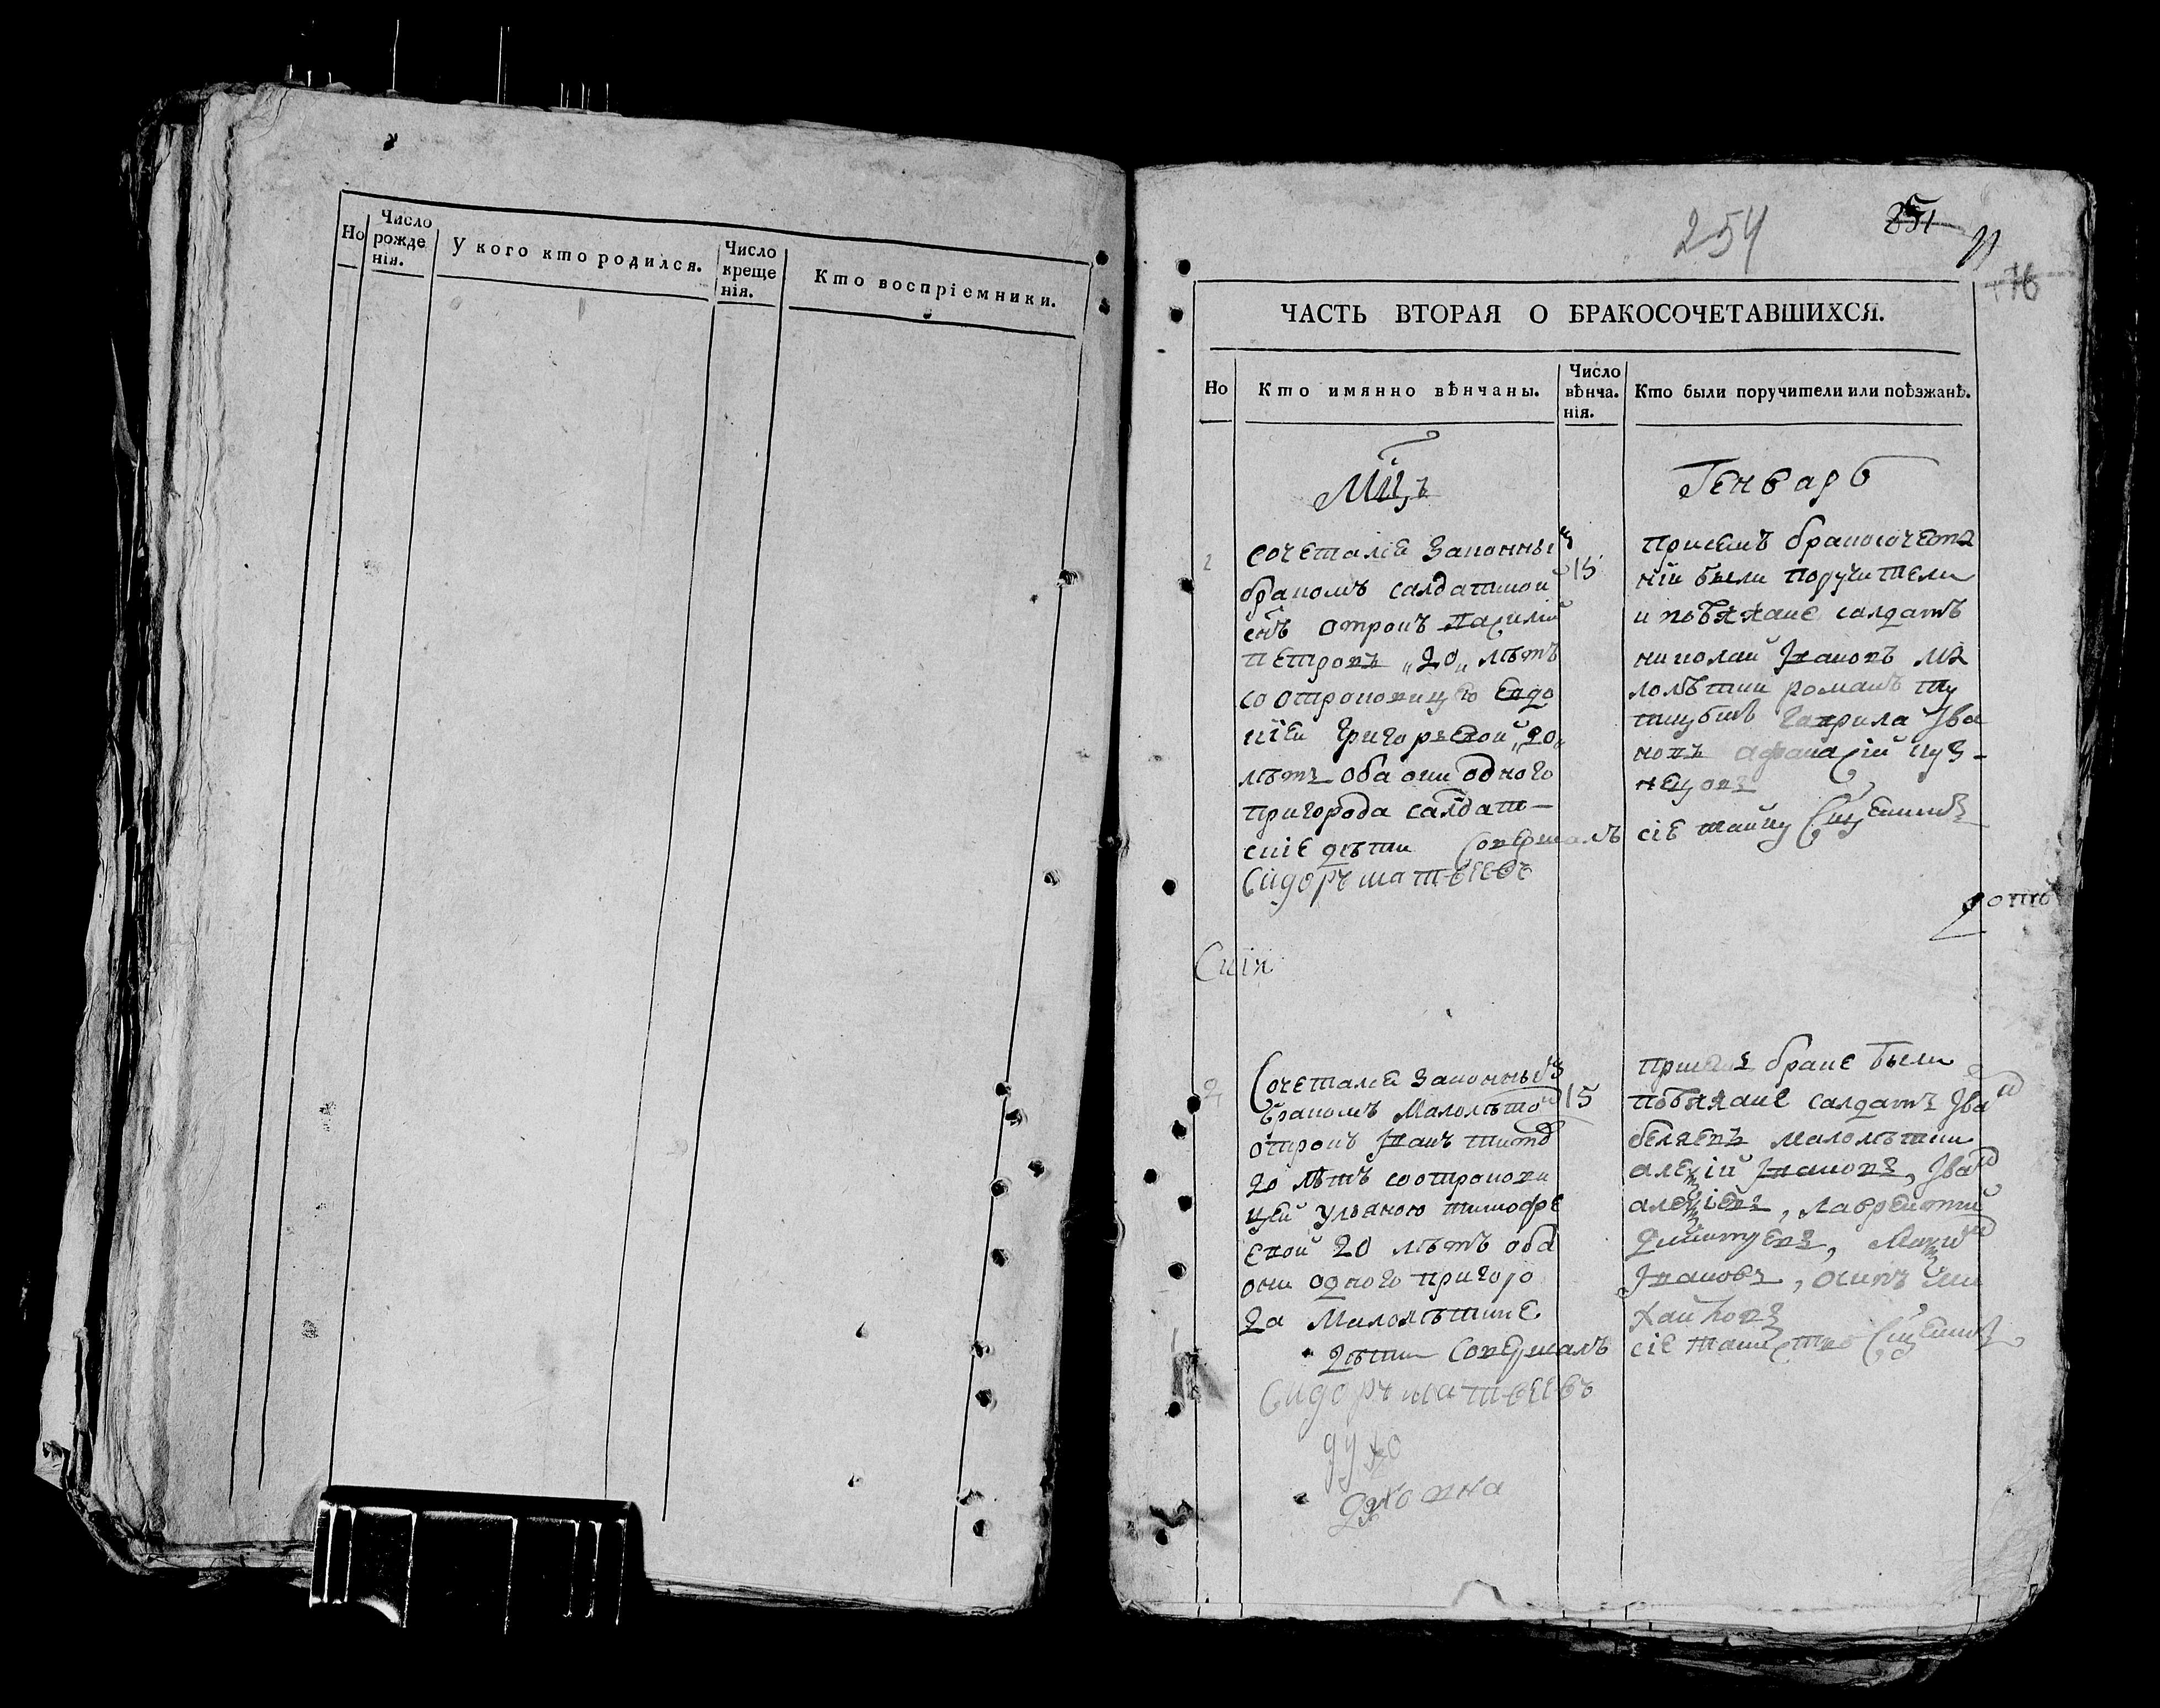 Но
Число рожде нія.
У кого кто родился.
Число креще нія.
Кто воспріемники.
254
251
76
ЧАСТЬ ВТОРАЯ О БРАКОСОЧЕТАВШИХСЯ.
Но
Кто имянно вѣнчаны.
Число вѣнча. нія.
Кто были поручители или поѣзжанѣ.
Мцъ
Генварь
1
сочетался законны
бракомъ салдатской
снъ отрокъ василій
петровъ „20„ лѣтъ
со отроковицею Евдо
кіей григорьевой „20„
лѣтъ оба они одного
пригорода салдат—
скіе дѣти совершалъ
Сидоръ матвѣевъ
15
при семъ бракосочета
ніи были поручители
и поѣзжане салдатъ
николай Іванов ма
лолѣтки романъ
гаврила Іва
новъ афанасій куз-
нецовъ
сіе тайну Сщенникъ
Сиія
2
Сочетался законный
бракомъ Малолѣто
отрокъ Іванъ титовъ
20 лѣтъ со отрокови
цей ульяною тимофе
евой 20 лѣтъ оба
они одного пригоро
да Малолѣтние
дѣти совершалъ
Сидоръ матвеевъ
духо
духовна
15
при бракѣ были
поѣзжане салдатъ Іва
беляевъ малолѣтки
алексій Івановъ, Іва
алексіевъ, лаврентий
димитриевъ, Макси
Івановъ, осипъ ми
хайловъ
сіе таинство Сщенникъ